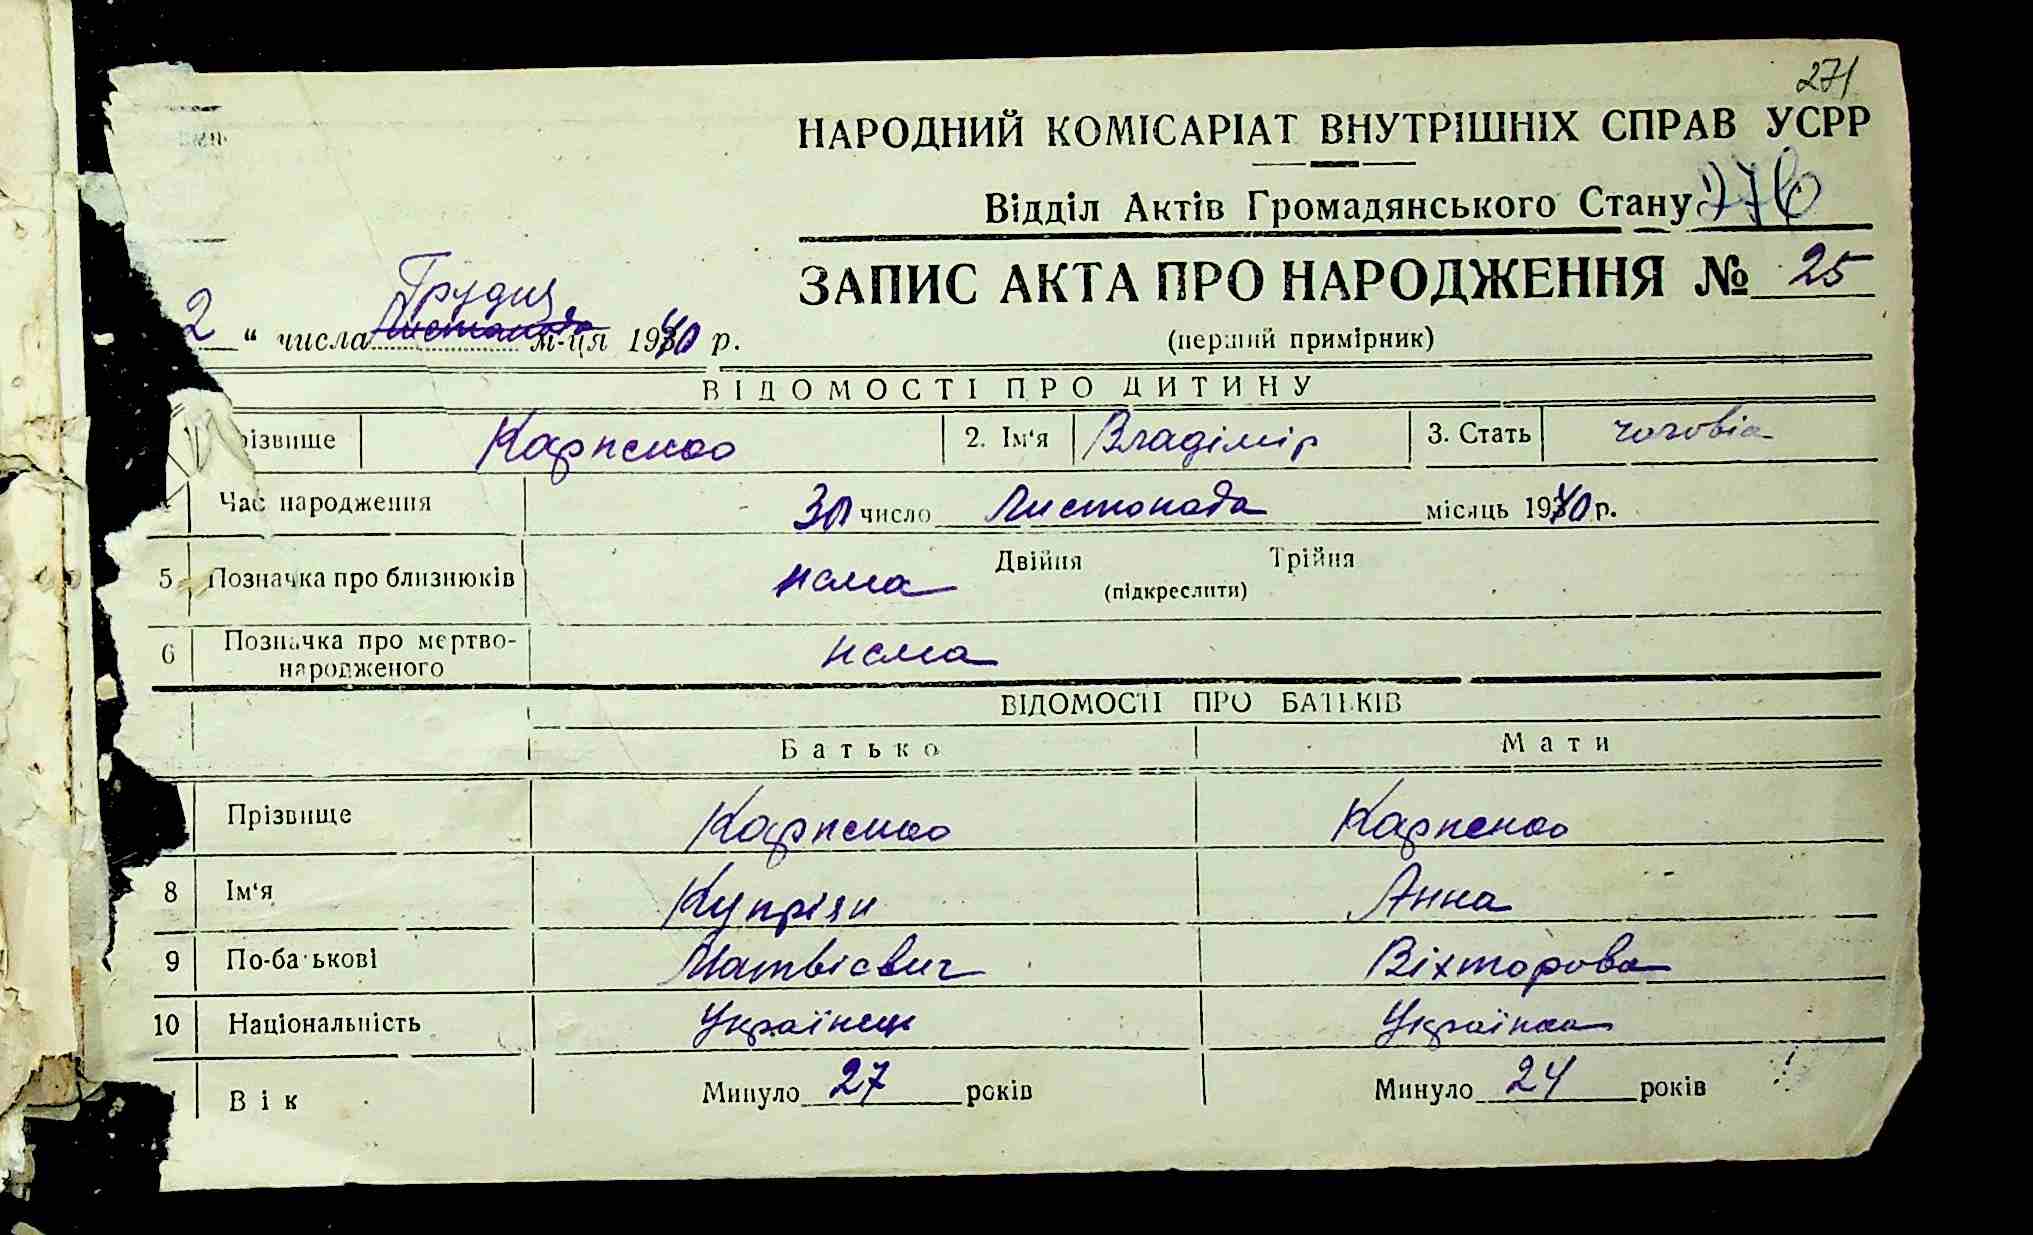 271
НАРОДНИЙ КОМІСАРІАТ ВНУТРІШНІХ СПРАВ УСРР
Відділ Актів Громадянського Стану 276
ЗАПИС АКТА ПРО НАРОДЖЕННЯ № 25
(перший примірник)
Грудня
2 " числа Листопада м-ця 1940 р.
ВІДОМОСТІ ПРО ДИТИНУ
різвище Карпенко 2. Ім'я Владімір 3. Стать чоловіча
Час народження 30 число Листопада місяць 1940 р.
5 Позначка про близнюків нема Двійня Трійня
(підкреслити)
6 Позначка про мертво-
народженого нема
ВІДОМОСТІ ПРО БАТЬКІВ
Батько Мати
Прізвище Карпенко Карпенко
8 Ім'я Купріян Анна
9 По-батькові Матвієвич Вікторова
10 Національність Українець Українка
Вік Минуло 27 років Минуло 24 років